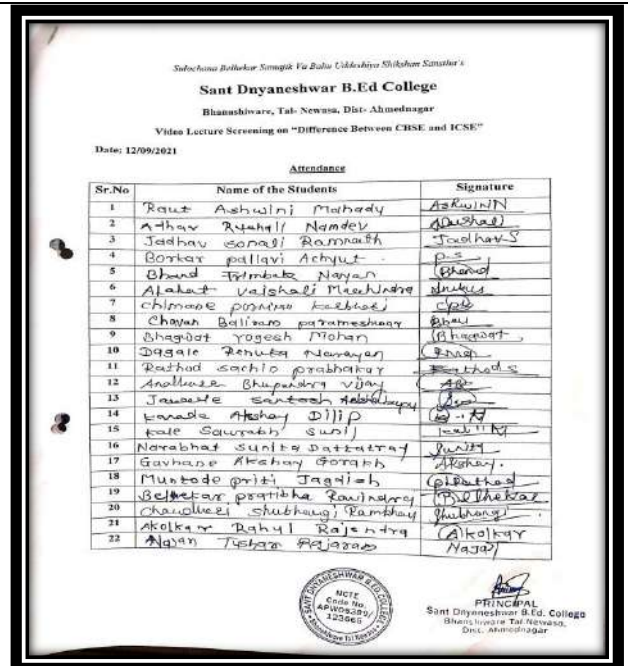 Sulochana Belhekar Samajik Va Bahu Uddeshiya Shikshan Sanstha's
Sant Dnyaneshwar B.Ed College
Bhanashiware, Tal- Newasa, Dist- Ahmednagar
Video Lecture Screening on "Difference Between CBSE and ICSE"
Date: 12/09/2021
Attendance
Sr.No Name of the Students Signature
1 Raut Ashwini Mahady AshwiNN
2 Adhav Rushali Namdev
3 Jadhav Sonali Ramnath Jadhav S
4 Borkar pallavi Achyut . P.S
5 Bhand Trimbak Nayan Bhand
6 Alahat vaishali Macchindra
7 chimane
8 Chavan Baliram parameshwar
9 Bhagwat Yogesh Mohan Bhagwat
10 Dagale Renuka Narayan
11 Rathod sachin prabhakar Rathod S
12 Bhupendra Vijay
13 Santosh
14 Kanade Akshay Dilip
15 Kale Saurabh sunil
16 Narabhat Sunita Dattatray Sunita
17 Gavhane Akshay Gorakh Akshay.
18 Muntode priti Jagdish
19 Belhekar pratibha Ravindra Belhekar
20 chaudhari shubhangi Rambhau Shubhangi
21 Akolkar Rahul Rajendra Akolkar
22 Najan Tushar Rajaram Najan
SANT DNYANESHWAR B.ED. COLLEGE
NCTE
Code No.
APW05399/
123665
PRINCIPAL
Sant Dnyaneshwar B.Ed. College
Bhanshiware Tal.Newasa,
Dist. Ahmednagar